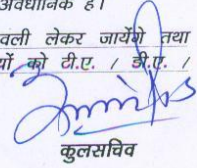 अवधानिक है।
वली लेकर जायेंगे तथा
यों को टी.ए. / डी.ए. /
कुलसचिव